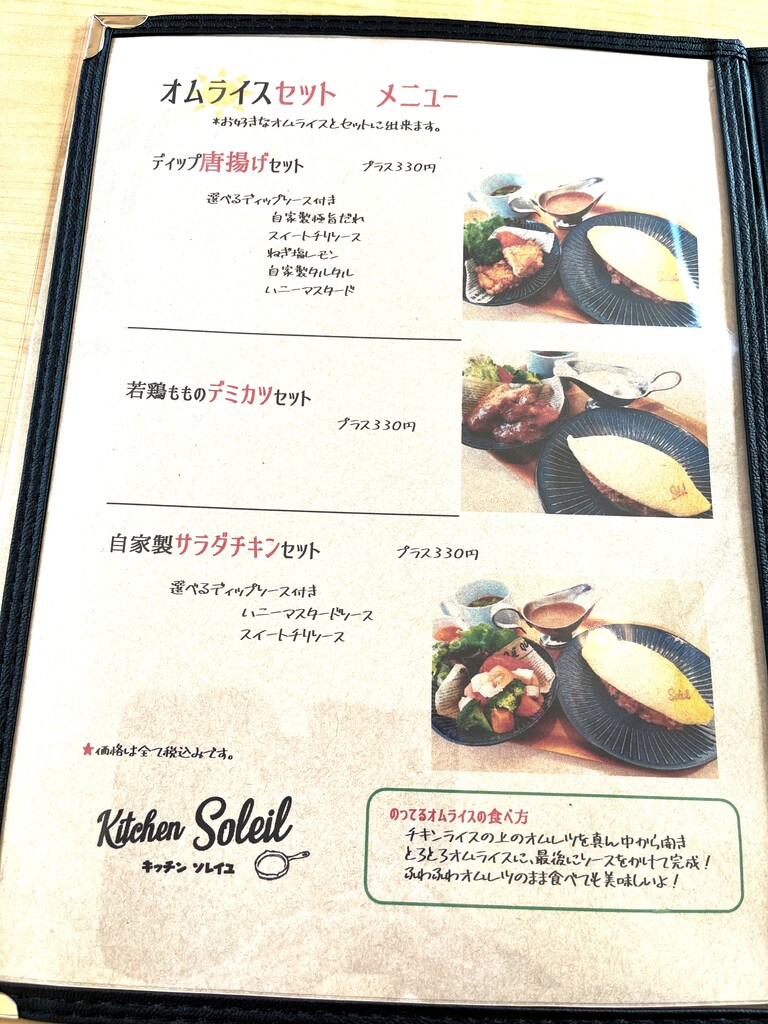 オムライスセット メニュー
*お好きなオムライスとセットに出来ます。
ディップ唐揚げセット プラス330円
選べるディップソース付き
自家製極旨だれ
スイートチリソース
ねぎ塩レモン
自家製タルタル
ハニーマスタード
若鶏もものデミカツセット
プラス330円
自家製サラダチキンセット プラス330円
選べるディップソース付き
ハニーマスタードソース
スイートチリソース
★価格は全て税込みです。
Kitchen Soleil
キッチン ソレイユ
のってるオムライスの食べ方
チキンライスの上のオムレツを真ん中から開き
とろとろオムライスに、最後にソースをかけて完成!
ふわふわオムレツのまま食べても美味しいよ!
Soleil
Soleil
Soleil